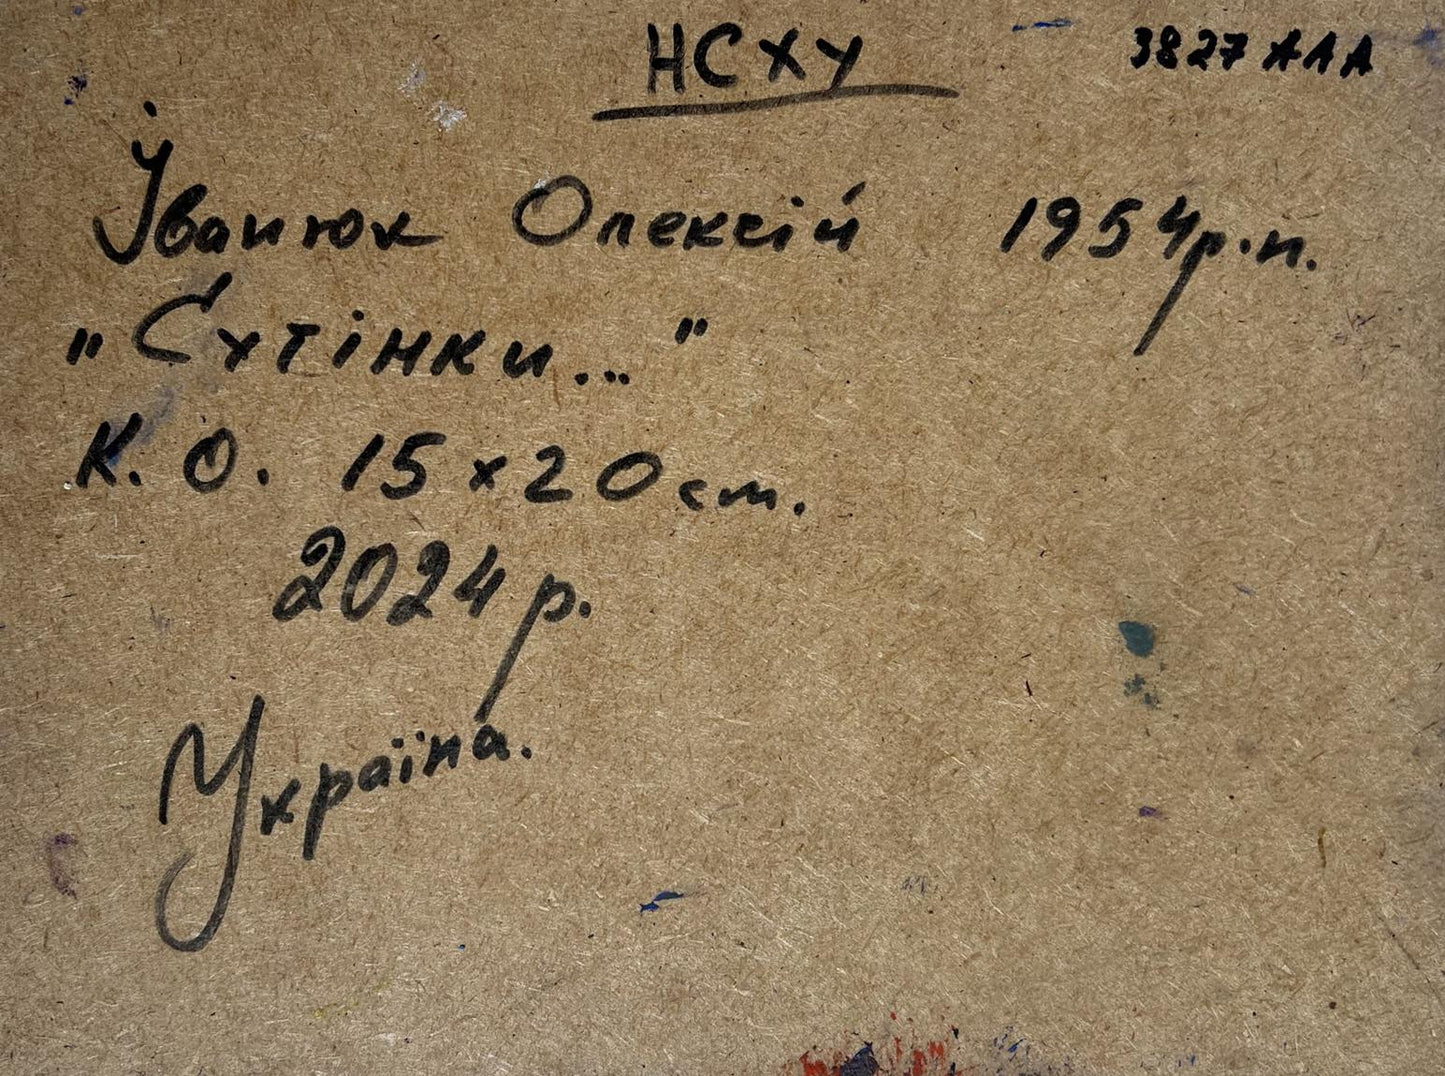 НСХУ
3827 АЛА
Іванюк Олексій 1954р.н.
„Сутінки..."
К. О. 15х20см.
2024р.
Україна.